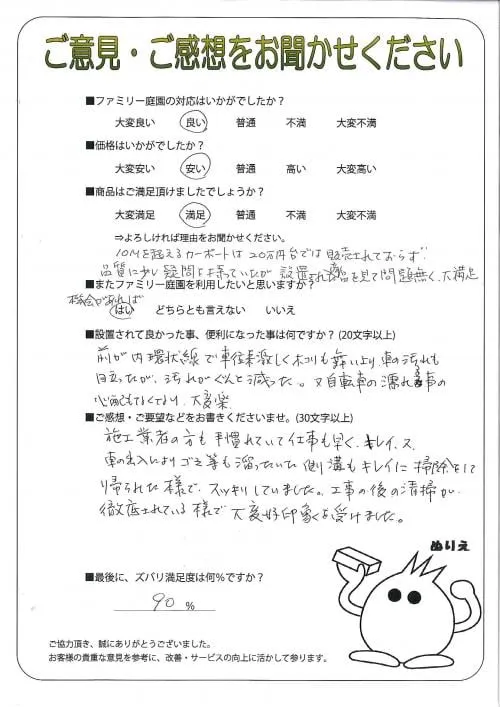 ご意見・ご感想をお聞かせください
■ファミリー庭園の対応はいかがでしたか？
大変良い 良い 普通 不満 大変不満
■価格はいかがでしたか？
大変安い 安い 普通 高い 大変高い
■商品はご満足頂けましたでしょうか？
大変満足 満足 普通 不満 大変不満
⇒よろしければ理由をお聞かせください。
10Mを超えるカーポートは20万円台では販売されておらず
品質に少し疑問は よっていたが 設置され 見て問題無く、大満足
■またファミリー庭園を利用したいと思いますか？
機会があれば
はい どちらとも言えない いいえ
■設置されて良かった事、便利になった事は何ですか？(20文字以上)
前が内環状線で車往来激しくホコリも舞いより車の汚れも
目立ったが、汚れがぐんと減った。又自転車の濡れる事の
心配もなくなり、大変楽
■ご感想・ご要望などをお書きくださいませ。(30文字以上)
施工業者の方も手慣れていて仕事も早く、キレイ、又
車の出入によりゴミ等も溜っていた側溝もキレイに掃除をして
帰られた様で、スッキリしていました。工事の後の清掃が
徹底されている様で大変好印象を受けました。
ぬりえ
■最後に、ズバリ満足度は何%ですか？
90 %
ご協力頂き、誠にありがとうございました。
お客様の貴重な意見を参考に、改善・サービスの向上に活かして参ります。